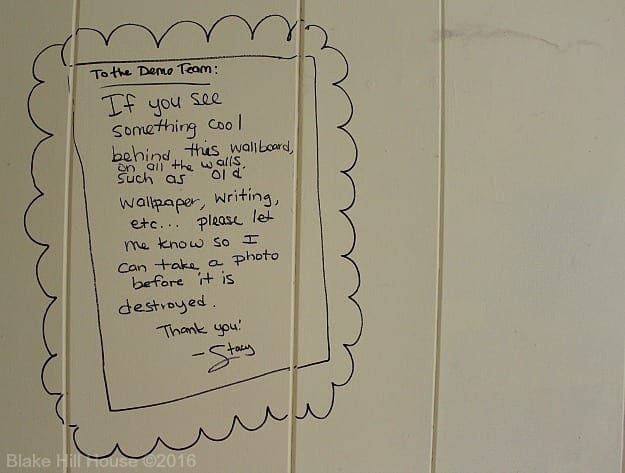 To the Demo Team:
If you see
something cool
behind this wallboard,
on all the walls,
such as old
wallpaper, writing,
etc... please let
me know so I
can take a photo
before it is
destroyed.
Thank you!
-Stacy
Blake Hill House ©2016